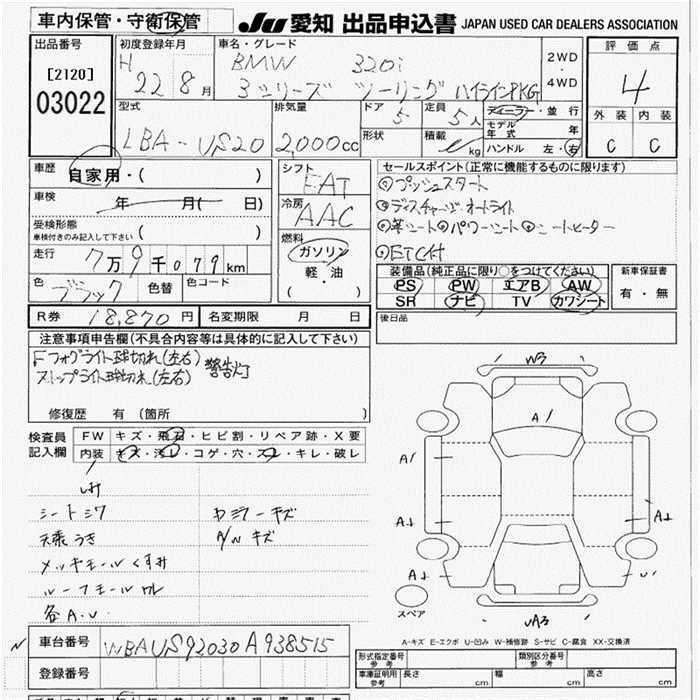 車内保管・守衛保管
JU 愛知 出品申込書 JAPAN USED CAR DEALERS ASSOCIATION
出品番号
[2120]
03022
初度登録年月
H 22 8月
車名・グレード
BMW 320i
3シリーズ ツーリング ハイラインPKG
2WD
4WD
評価点
4
外装 内装
C C
型式
LBA-US20
排気量
2,000cc
ドア
5
定員
5人
形状
積載
kg
ディーラー・並行
モデル年式 年
ハンドル 左・右
車歴
自家用・( )
車検
年 月( 日)
受検形態
車検付きのみ記入して下さい ( )
走行
7万9千079km
色
ブラック
色替
色コード
シフト
FAT
冷房
AAC
燃料
ガソリン
軽・油
( )
セールスポイント(正常に機能するものに限ります)
◎プッシュスタート
◎ディスチャージ・オートライト
◎革シート◎パワーシート◎シートヒーター
◎ETC付
装備品(純正品に限り○をつけてください)
PS PW エアB AW
SR ナビ TV カワシート
新車保証書
有・無
後日品
R券 18,870円
名変期限 月 日
注意事項申告欄(不具合内容等は具体的に記入して下さい)
Fフォグライト球切れ(左右)
ストップライト球切れ(左右) 警告灯
修復歴 有 (箇所 )
検査員
記入欄
FW キズ・飛石・ヒビ割・リペア跡・X要
内装 キズ・汚レ・コゲ・穴・スレ・キレ・破レ
シートシワ
天張うき
メッキモールくすみ
ルーフモール
各A.U.
ドミラーキズ
A/Wキズ
W3
A/
A/
A↓
A↓
A↓
U'
UA3
スペア
A-キズ E-エクボ U-凹み W-補修跡 S-サビ C-腐食 XX-交換済
車台番号
WBAUS92030A938515
登録番号
形式指定番号
参考
類別区分番号
参考
車庫証明用
参考
長さ cm
幅 cm
高さ cm